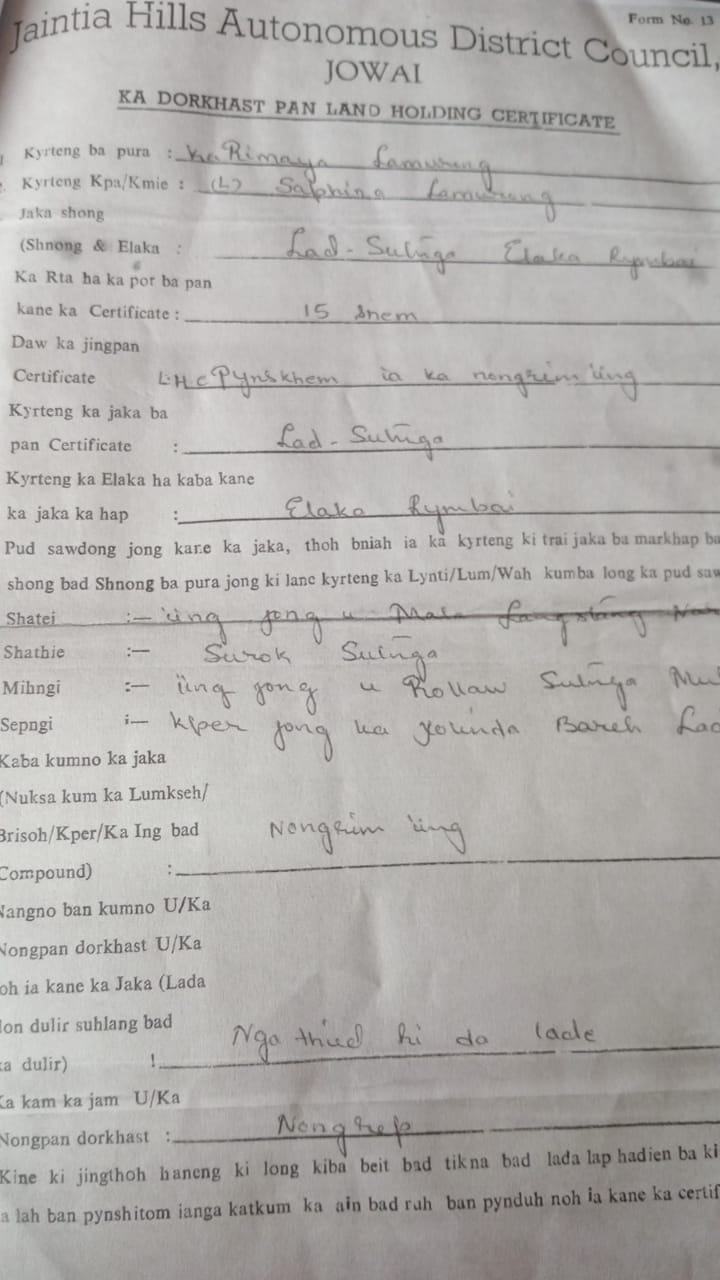 Form No. 13
Jaintia Hills Autonomous District Council,
JOWAI
KA DORKHAST PAN LAND HOLDING CERTIFICATE
Kyrteng ba pura : Ka Rimaya Lamurong
Kyrteng Kpa/Kmie : (L) Salphina Lamurong
Jaka shong
(Shnong & Elaka : Lad-Sutnga Elaka Rymbai
Ka Rta ha ka por ba pan
kane ka Certificate : 15 snem
Daw ka jingpan
Certificate L.H.C Pynskhem ia ka nongrim ïing
Kyrteng ka jaka ba
pan Certificate : Lad-Sutnga
Kyrteng ka Elaka ha kaba kane
ka jaka ka hap : Elaka Rymbai
Pud sawdong jong kane ka jaka, thoh bniah ia ka kyrteng ki trai jaka ba markhap ba
shong bad Shnong ba pura jong ki lane kyrteng ka Lynti/Lum/Wah kumba long ka pud saw
Shatei :— ïing jong u
Shathie :— Surok Sutnga
Mihngi :— ïing jong u Rollaw Sutnga
Sepngi :— Kper jong ka Bareh Lad
Kaba kumno ka jaka
(Nuksa kum ka Lumkseh/
Brisoh/Kper/Ka Ing bad Nongrim ïing
Compound) :
Nangno ban kumno U/Ka
Nongpan dorkhast U/Ka
oh ia kane ka Jaka (Lada
don dulir suhlang bad
ka dulir) ! Nga thied hi da lade
Ka kam ka jam U/Ka
Nongpan dorkhast : Nongrep
Kine ki jingthoh haneng ki long kiba beit bad tikna bad lada lap hadien ba ki
a lah ban pynshitom ianga katkum ka ain bad ruh ban pynduh noh ia kane ka certif